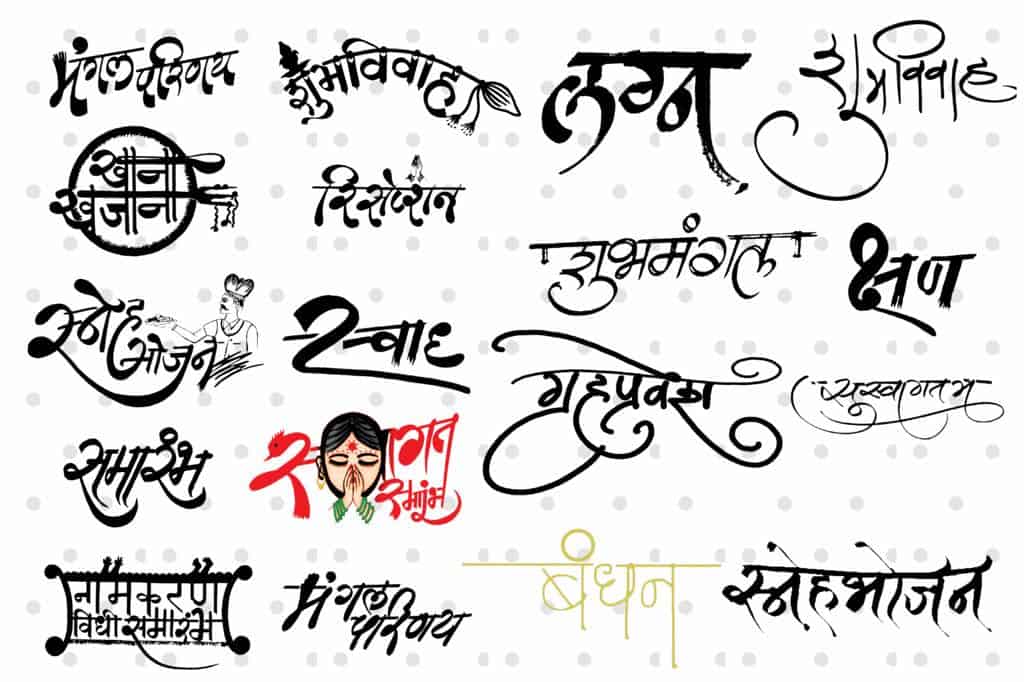 मंगल परिणय
शुभविवाह
लग्न
शुभविवाह
खाना
खजाना
रिसेप्शन
शुभमंगल
क्षण
स्नेह
भोजन
स्वाद
ग्रहप्रवेश
सुस्वागतम
समारंभ
स्वागत
समारंभ
नामकरण
विधी समारंभ
मंगल
परिणय
बंधन
स्नेहभोजन